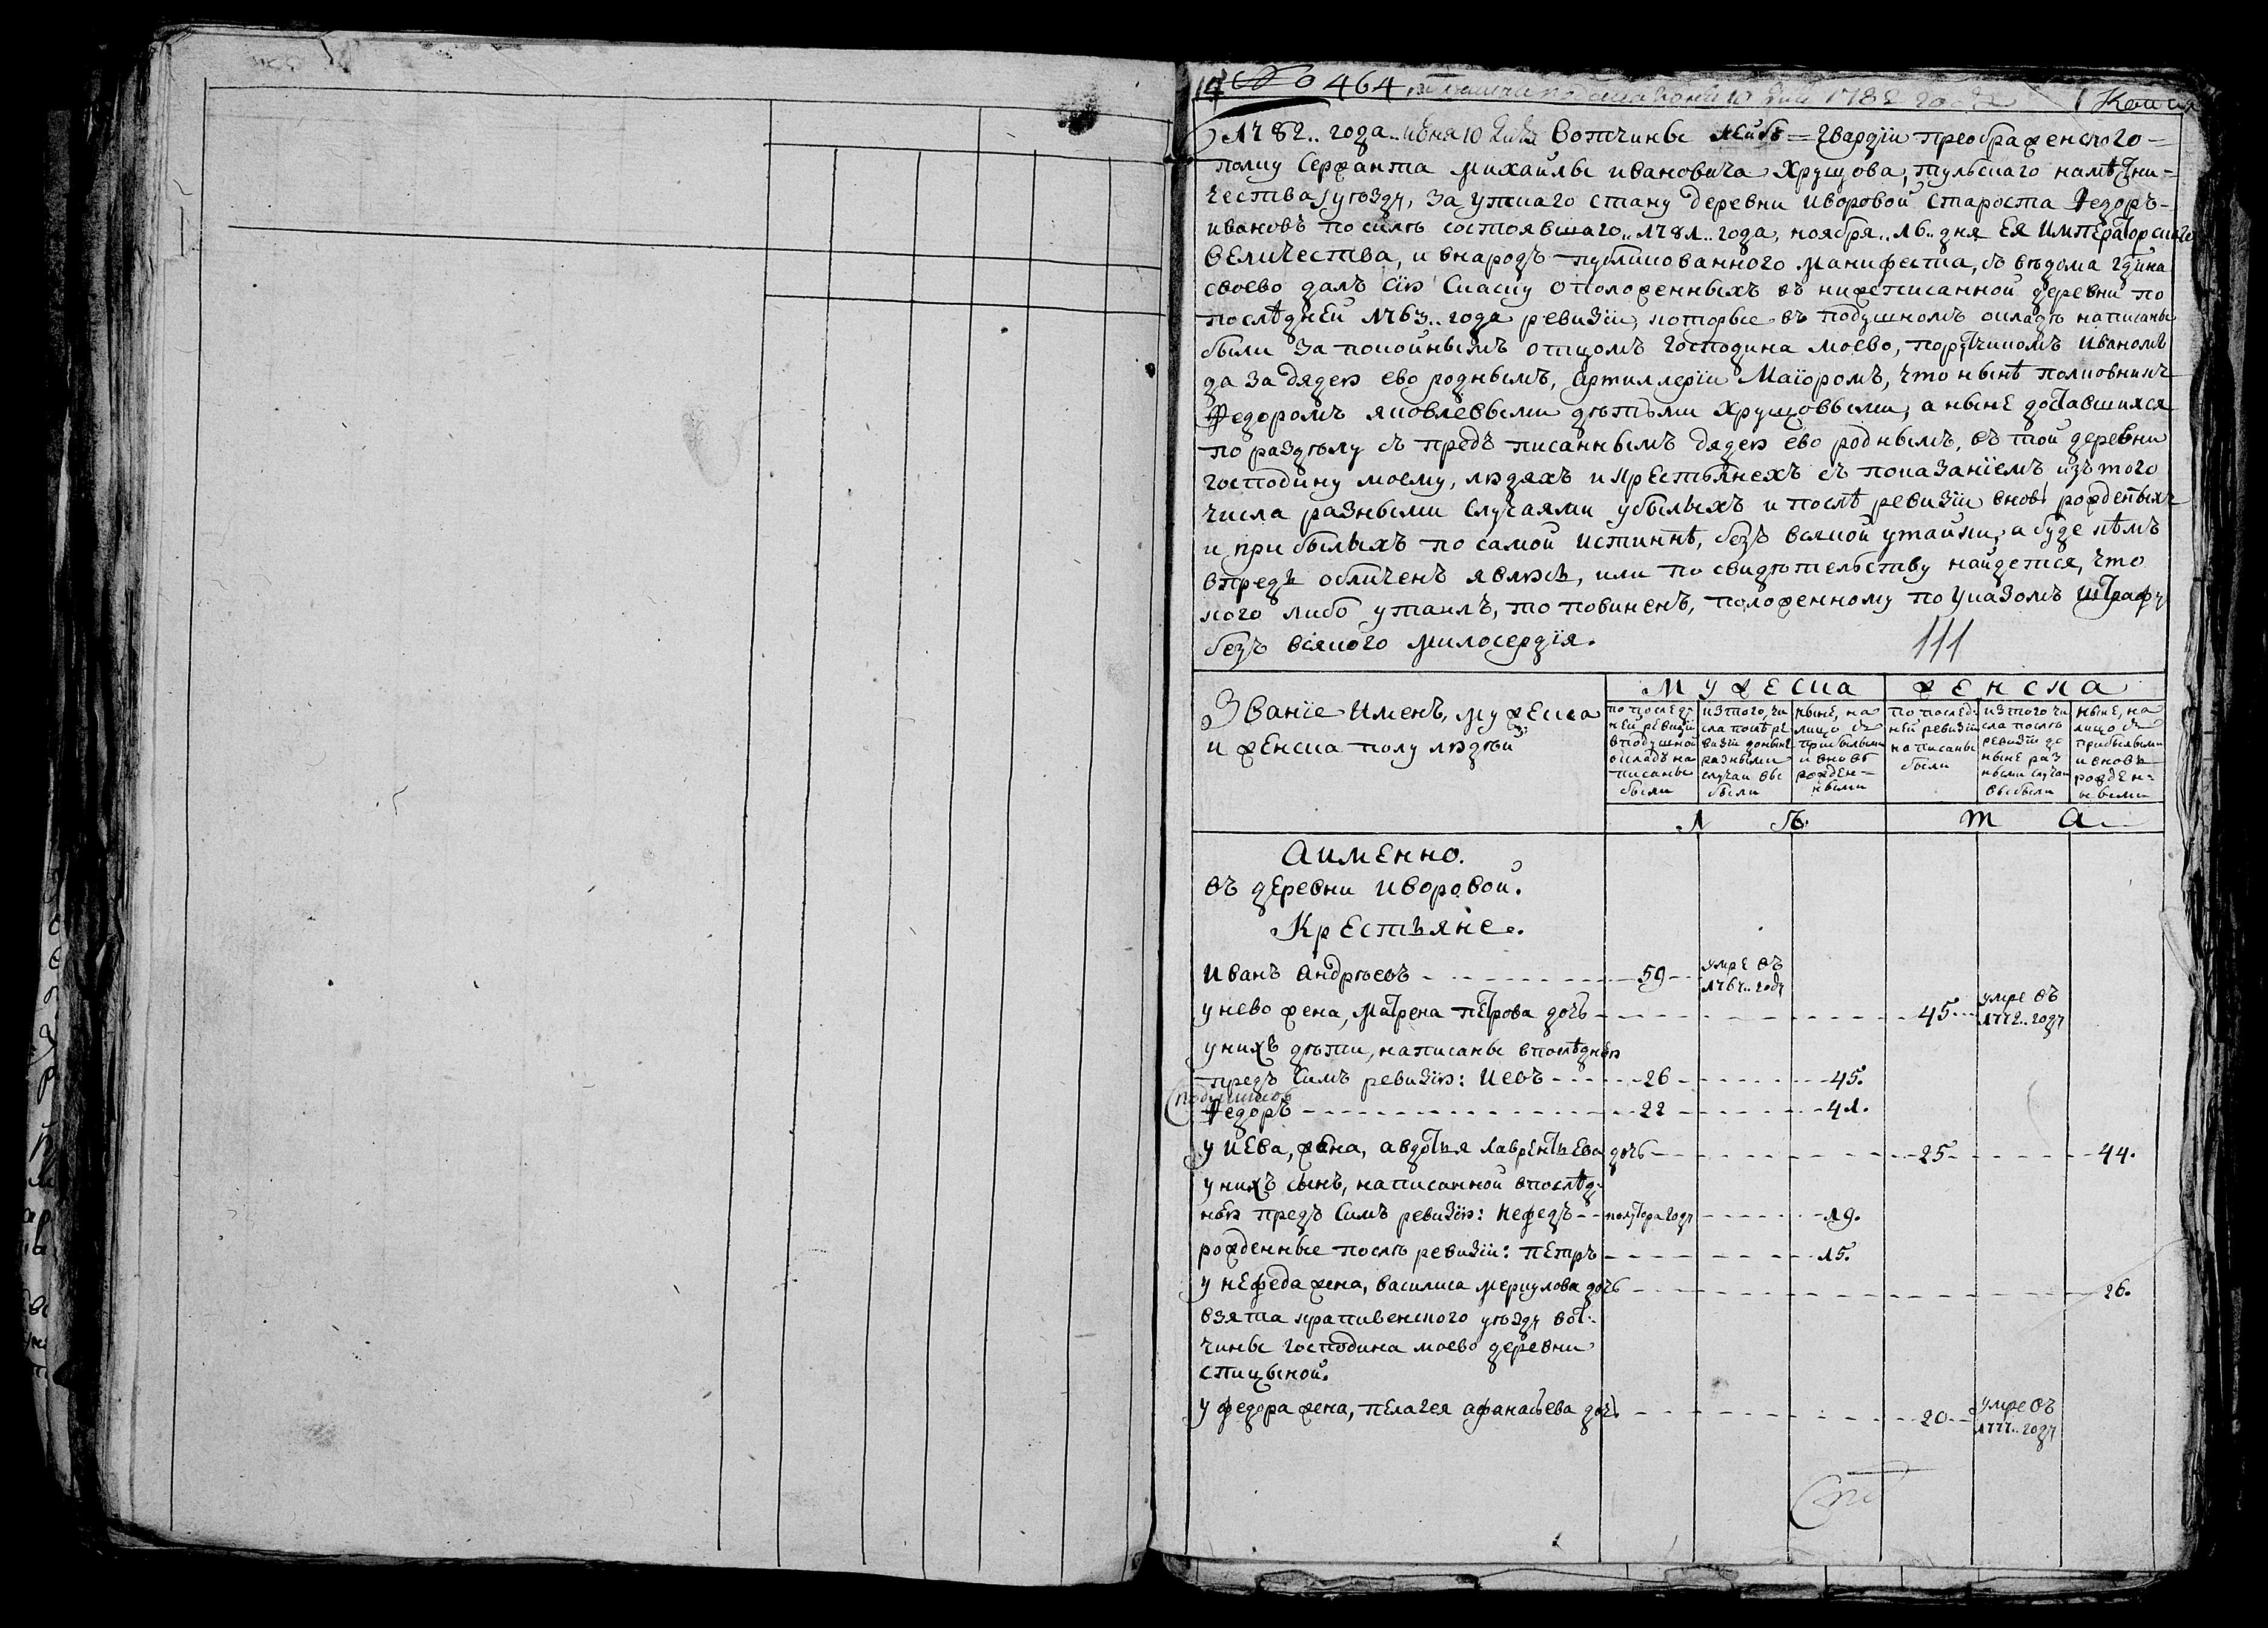 № 464 1782 года Копия
1782.. года июня 10 дня Вотчины лейбъ=гвардїи преображенского=
полку Сержанта Михайлы ивановича Хрущова, тульскаго намѣстни=
чества уѣзду, Заупскаго стану деревни иворовой Староста Ѳедоръ-
ивановъ по силѣ состоявшаго.. 1781.. года, ноября.. 16.. дня ЕЯ ИМПЕРаторскаго
ВЕЛИЧЕСТВА, и внародъ публикованного манифеста, съ вѣдома Гдина
своево далъ сїю Скаску о положенныхъ въ нижеписанной деревни по
послѣдней 1763.. года ревизїи, которые въ подушномъ окладѣ написаны
были за покойнымъ отцомъ господина моево, порутчикомъ иваномъ
да за дядею ево роднымъ, Артиллерїи Маїоромъ, что нынѣ полковникъ
Ѳедоромъ яковлевыми дѣтьми хрущовыми, а ныне доставшихся
по раздѣлу съ предъ писаннымъ дядею ево роднымъ, въ той деревни
господину моему, людяхъ и крестьянехъ съ показанїемъ изъ того
числа разными случаями убылыхъ и послѣ ревизїи вновь рожденныхъ
и прибылыхъ по самой истиннѣ, безъ всякой утайки, а буде кѣмъ
впредь обличенъ явлюсь, или по свидѣтельству найдется, что
кого либо утаилъ, то повиненъ, положенному по указомъ штрафу
безъ всякого милосердїя.
111
Званїе Именъ, мужеска
и женска полу людѣй
мужеска
женска
по послед-
ней ревизїи
вподушной
окладъ на
писаны
были
изтого, чи
сла послѣ ре
визїи доныне
разными
случаи вы
были
ныне, на
лицо съ
прибылыми
и вновь
рожден-
ными
по послед-
ней ревизїи
написаны
были
изтого чи
сла послѣ
ревизїи до
ныне раз
ными случаи
выбыли
ныне, на
лицо съ
прибылыми
и вновь
рожден-
ными
л ѣ т а
Аименно.
въ деревни иворовой.
Крестьяне.
Иванъ Андрѣевъ 59 умре въ
1767.. году
унево жена, Матрена петрова дочь 45 умре въ
1772.. году
унихъ дѣти, написаны впослѣднею
предъ Симъ ревизїю: Иевъ 26 45.
Ѳедоръ 22 41.
у иева, жена, авдотья лаврентьева дочь 25 44.
унихъ сынъ, написанной впослѣд-
нюю предъ Симъ ревизїю: нефедъ полутора году 19.
рожденные послѣ ревизїи: петръ 15.
у нефеда жена, василиса меркулова дочь 26.
взята крапивенского уѣзду вот-
чины господина моево деревни
спицыной.
у федора жена, пелагея афанасьева дочь 20 умре въ
1777.. году